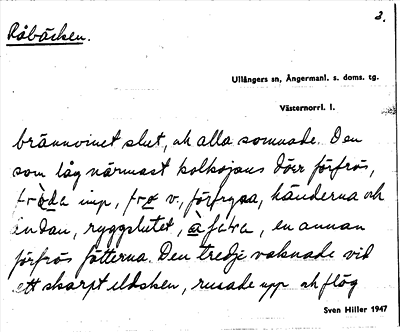 3.
Råbäcken.
Ullångers sn, Ångermanl. s. doms. tg.
Västernorrl. l.
brännvinet slut, ok alla somnade. Den
som låg närmast kolkojans dörr förfrös,
imp, v., händerna och
ändan, ryggslutet, en annan
förfrös fötterna. Den tredje vaknade vid
ett skarpt eldsken, rusade upp ok flög
Sven Hiller 1947